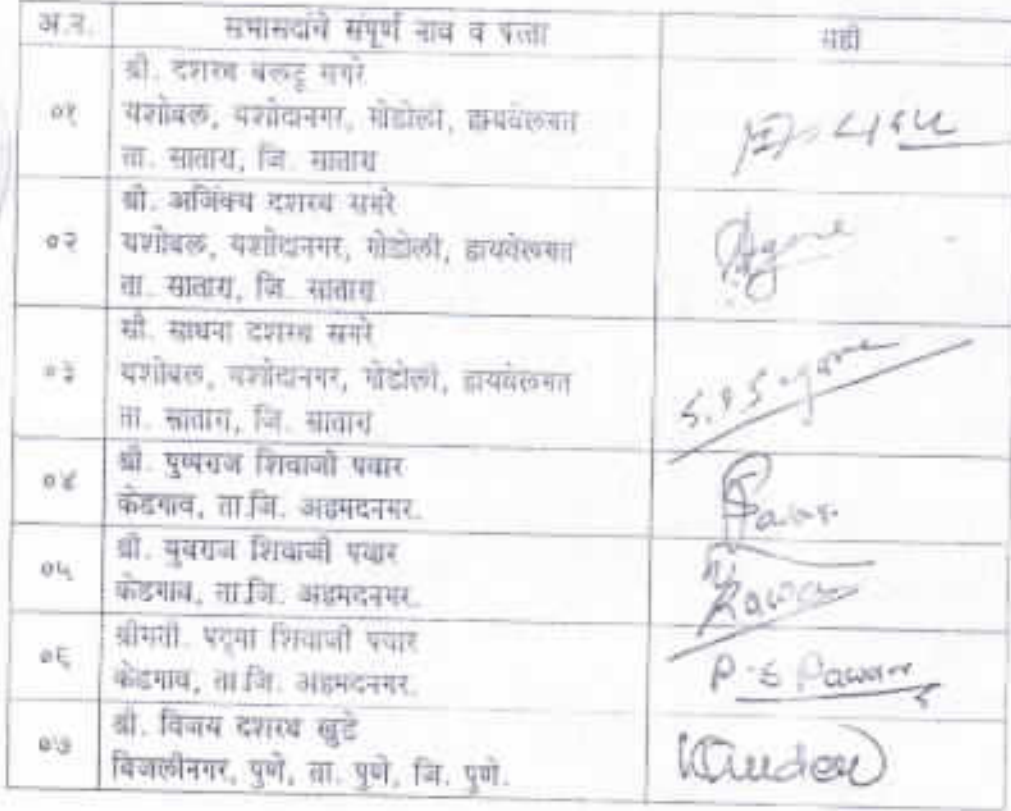 अ.नं. सभासदांचे संपूर्ण नाव व पत्ता सही
श्री. दशरथ बळटू सगरे
०१ यशोबल, यशोदानगर, गोडोली,
ता. सातारा, जि. सातारा
श्री. अजिंक्य दशरथ सगरे
०२ यशोबल, यशोदानगर, गोडोली,
ता. सातारा, जि. सातारा
सौ. साधना दशरथ सगरे
०३ यशोबल, यशोदानगर, गोडोली,
ता. सातारा, जि. सातारा
S.D.Sagare
श्री. पुष्पराज शिवाजी पवार
०४
केडगाव, ता.जि. अहमदनगर.
Pawar
श्री. युवराज शिवाजी पवार
०५
केडगाव, ता.जि. अहमदनगर.
Pawar
श्रीमती. पद्मा शिवाजी पवार
०६
केडगाव, ता.जि. अहमदनगर.
P.S Pawar
श्री. विजय दशरथ खुडे
०७
बिजलीनगर, पुणे, ता. पुणे, जि. पुणे.